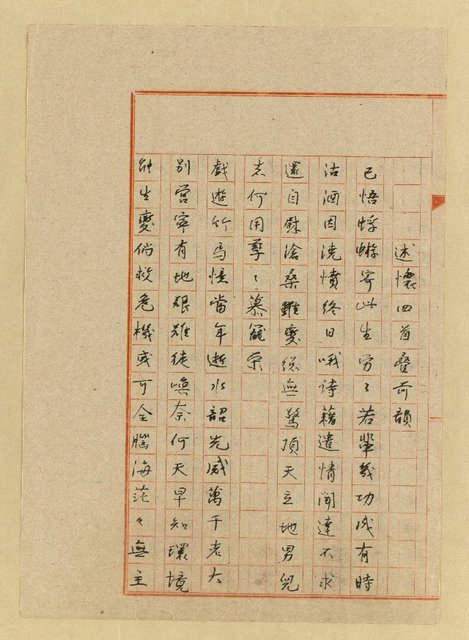 述懷四首疊前韻
已悟蜉蝣寄此生勞々若輩幾功成有時
沽酒因澆憤終日哦詩藉遣情聞達不求
還自慰滄桑雖變總無驚頂天立地男兒
志何用慕寵榮
戲遊竹馬憶當年逝水韶光感萬千老大
別營寧有地艱難徒喚奈何天早知環境
能生變倘救危機或可全腦海茫々無主